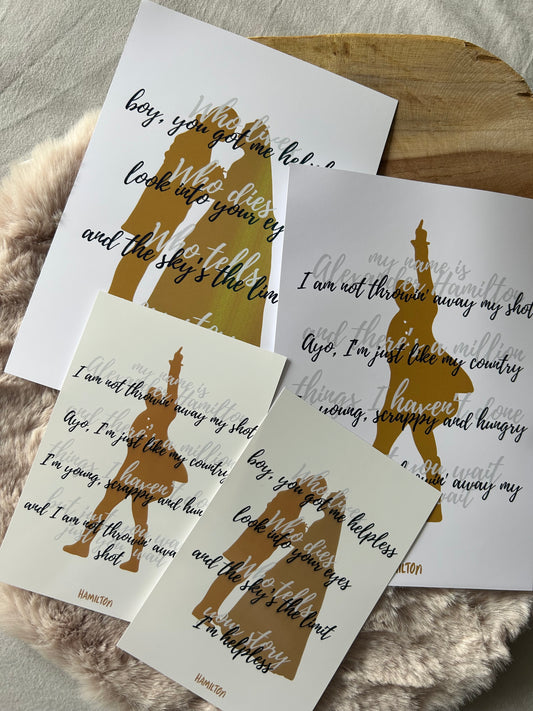 Who lives
boy, you got me
Who dies
look into your
Who tells
and the sky's the limit
my name is
Alexander Hamilton
I am not throwin' away my shot
and there's a million
Ayo, I'm just like my country
things I haven't done
I'm young, scrappy and hungry
but just you wait
throwin' away my
just you wait
HAMILTON
my name is
Alexander Hamilton
I am not throwin' away my shot
and there's a million
Ayo, I'm just like my country
things I haven't
I'm young, scrappy and
but just you wait
and I am not throwin' away
just you wait
shot
HAMILTON
Who lives
boy, you got me helpless
Who dies
look into your eyes
Who tells
and the sky's the limit
your story
I'm helpless
HAMILTON